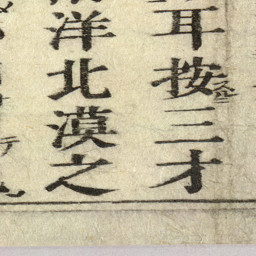 耳按三才
洋北漠之
テ